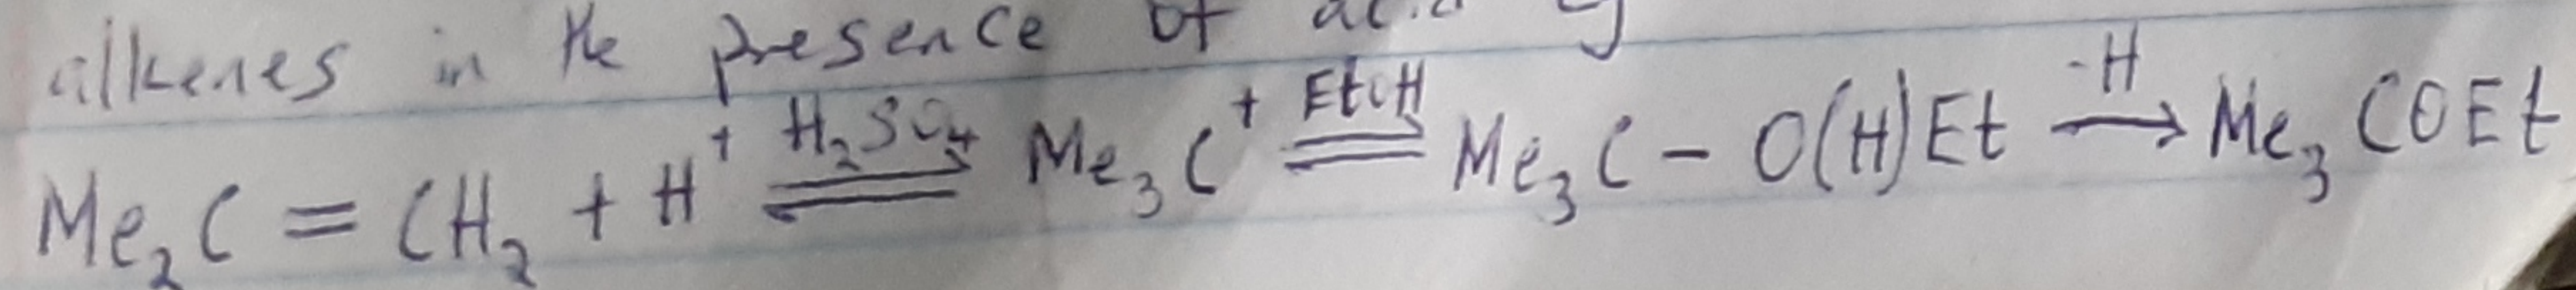 alkenes in the presence of acid eg
Me₂C = CH₂ + H⁺ ⇌[H₂SO₄] Me₃C⁺ ⇌[EtOH] Me₃C - O(H)Et →[-H] Me₃COEt